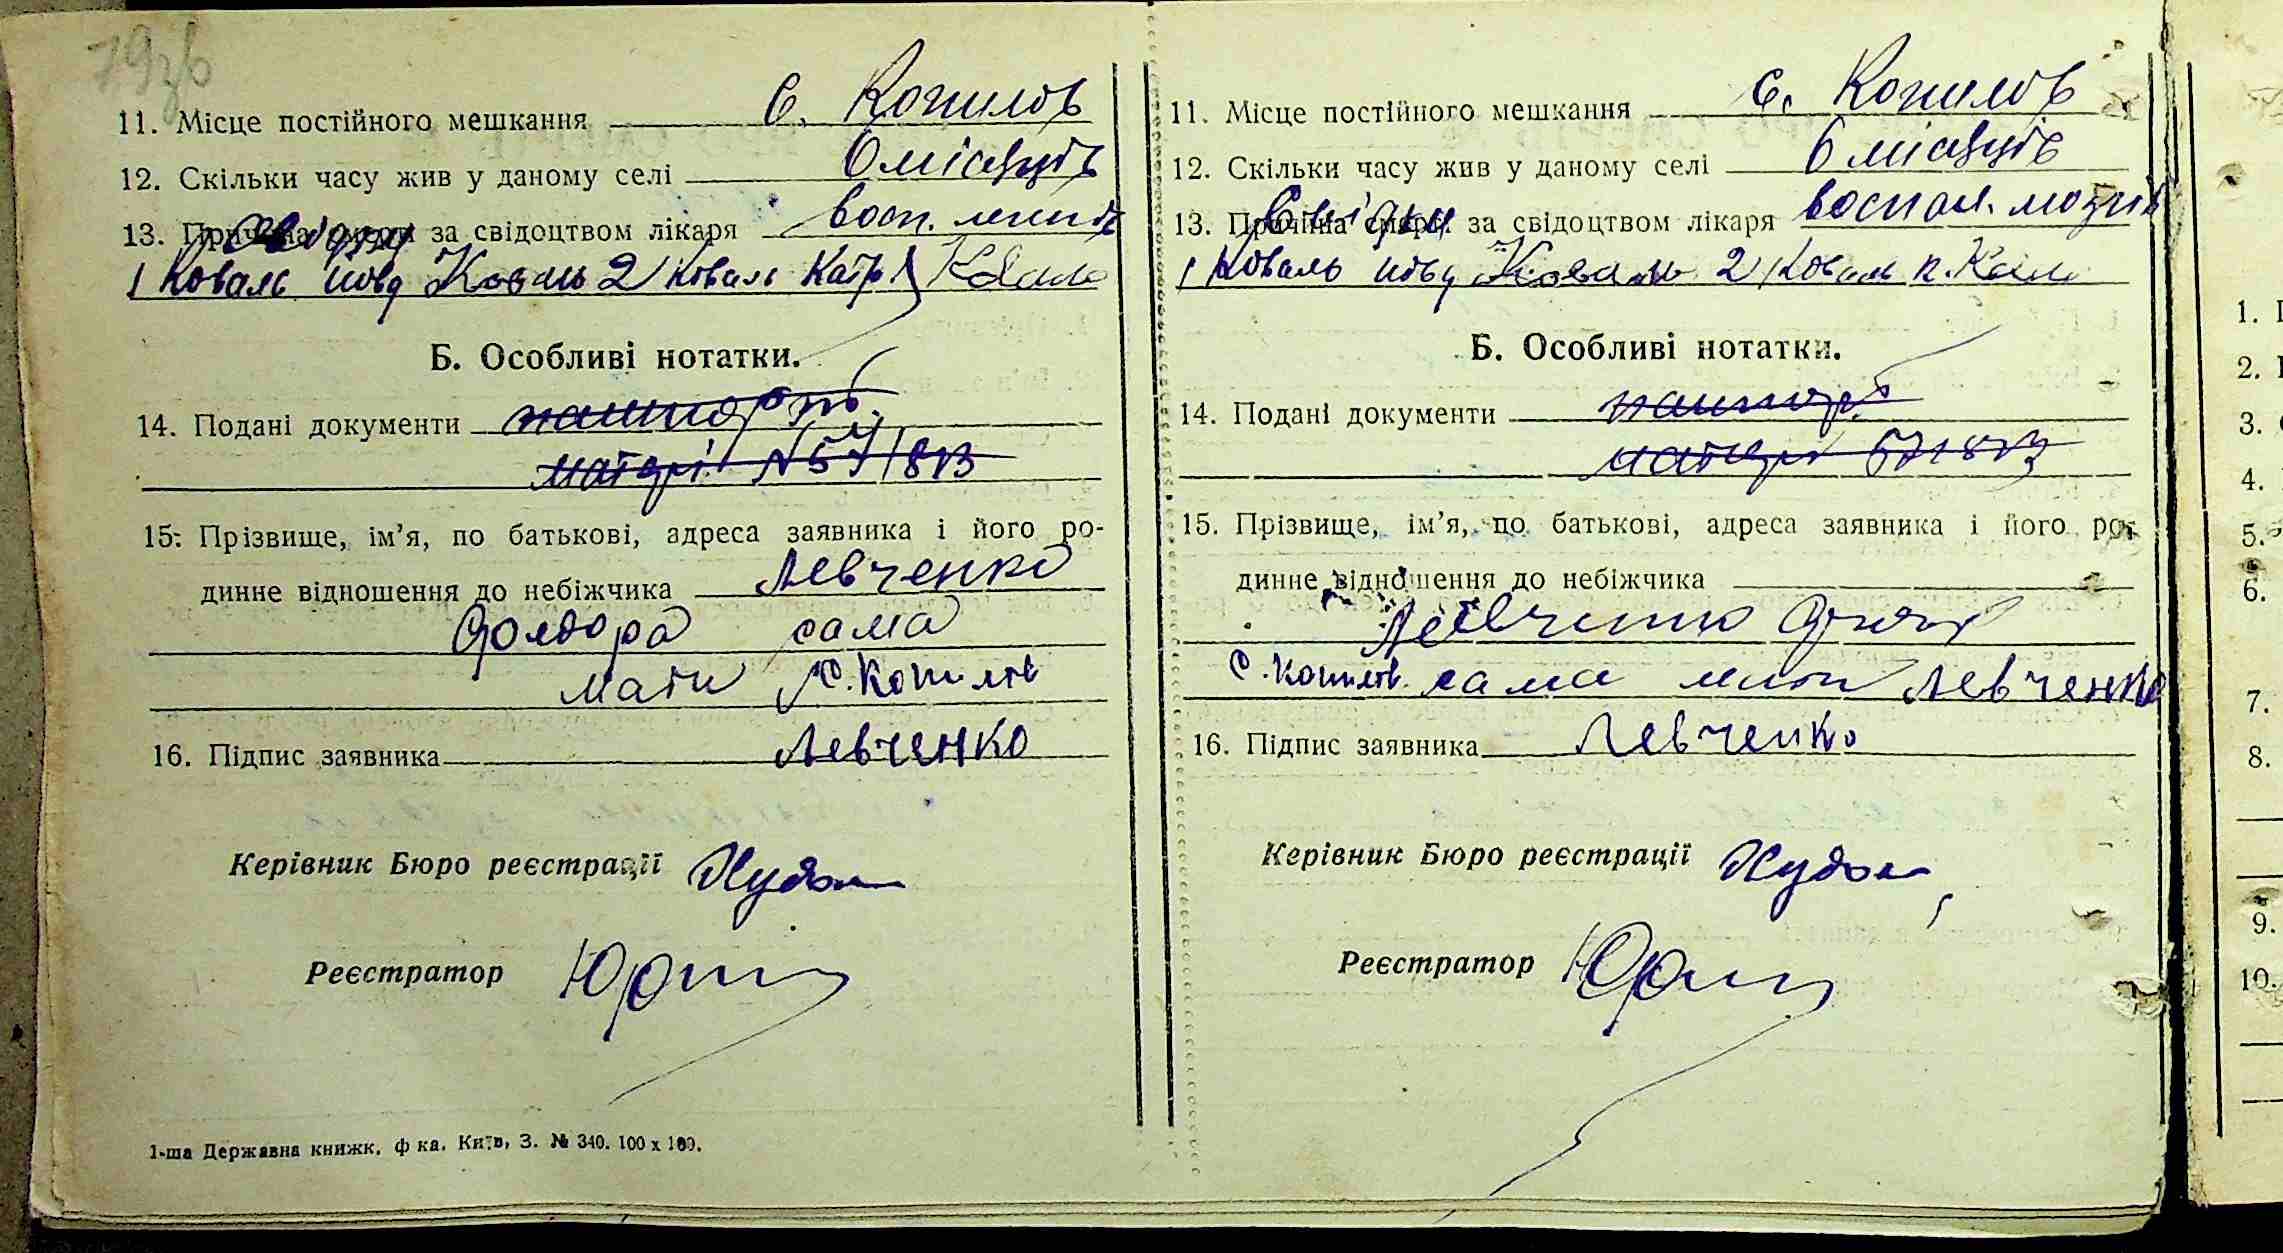 79зв
11. Місце постійного мешкання с. Копилов
12. Скільки часу жив у даному селі 6 місяців
13. Причина смерти за свідоцтвом лікаря восп.
Свідки
1 Коваль Коваль 2 Коваль Катр.
Б. Особливі нотатки.
14. Подані документи пашпорт
матері №57/813
15. Прізвище, ім'я, по батькові, адреса заявника і його ро-
динне відношення до небіжчика Левченко
сама
мати с. Копилов
16. Підпис заявника Левченко
Керівник Бюро реєстрації
Реєстратор
1-ша Державна книжк. ф ка. Київ, З. № 340. 100 х 100.
11. Місце постійного мешкання с. Копилов
12. Скільки часу жив у даному селі 6 місяців
13. Причина смерти за свідоцтвом лікаря воспал. мозгів
Свідки
1 Коваль Коваль 2 Коваль
Б. Особливі нотатки.
14. Подані документи пашпорт
матері 57/813
15. Прізвище, ім'я, по батькові, адреса заявника і його ро-
динне відношення до небіжчика
Левченко
с. Копилов. сама мати Левченко
16. Підпис заявника Левченко
Керівник Бюро реєстрації
Реєстратор
1.
2.
3.
4.
5.
6.
7.
8.
9.
10.